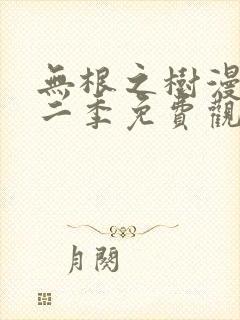 無根之樹漫
二季免費觀
月関